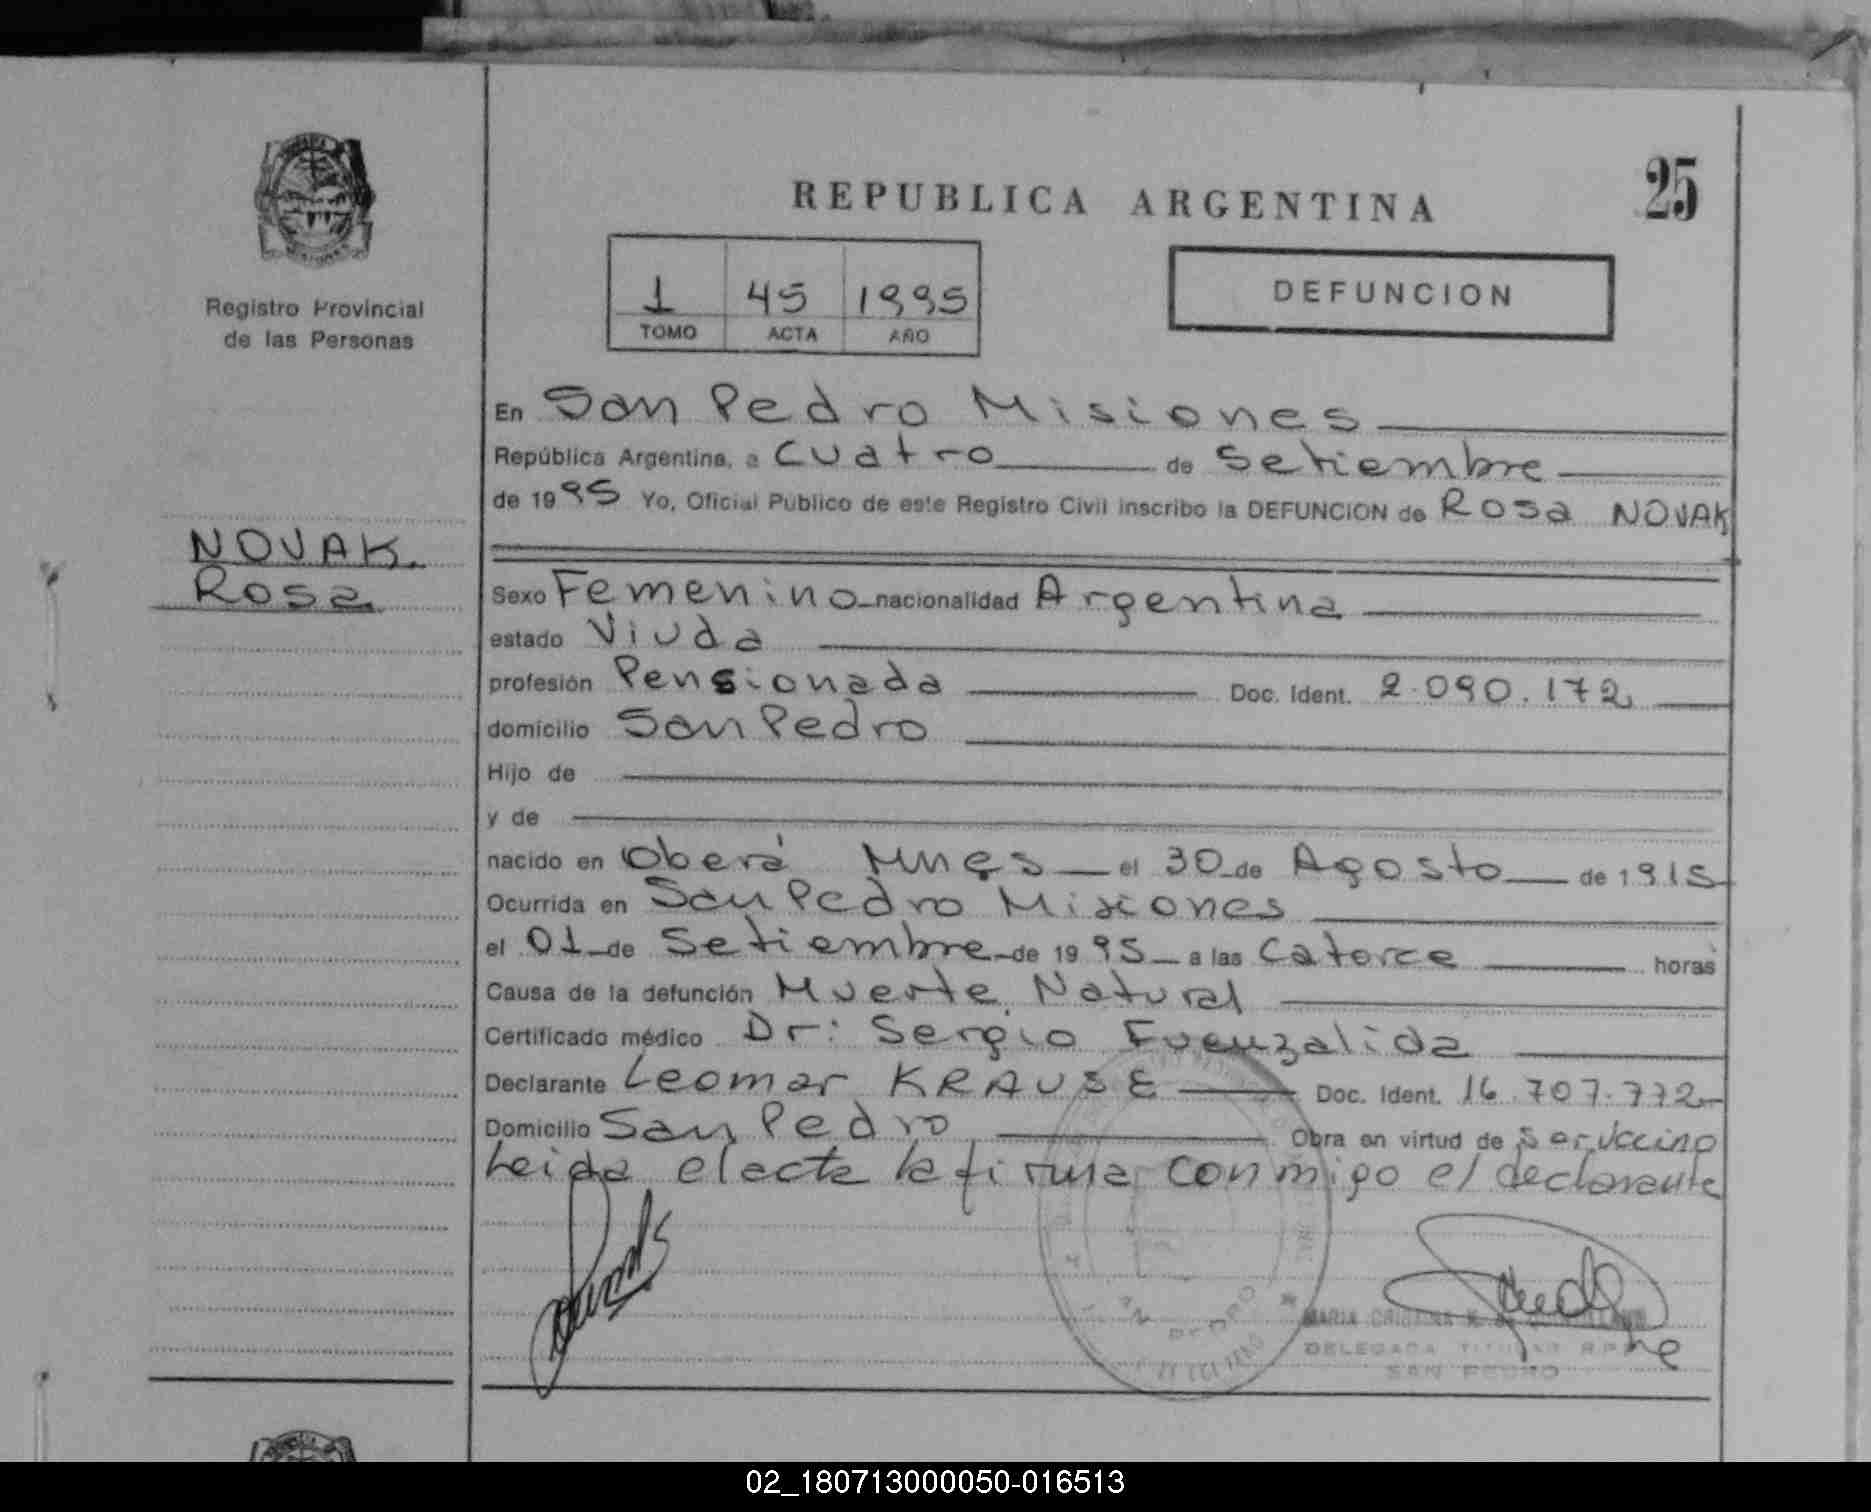 REPUBLICA ARGENTINA
25
Registro Provincial
de las Personas
1 45 1995
TOMO ACTA AÑO
DEFUNCION
NOVAK
Rosa
En San Pedro Misiones
República Argentina, a Cuatro de Setiembre
de 1995 Yo, Oficial Público de este Registro Civil inscribo la DEFUNCION de Rosa NOVAK
Sexo Femenino nacionalidad Argentina
estado Viuda
profesión Pensionada Doc. Ident. 2.090.172
domicilio San Pedro
Hijo de
y de
nacido en Oberá Mnes el 30 de Agosto de 1915
Ocurrida en San Pedro Misiones
el 01 de Setiembre de 1995 a las Catorce horas
Causa de la defunción Muerte Natural
Certificado médico Dr: Sergio Fuenzalida
Declarante Leomar KRAUSE Doc. Ident. 16.707.772
Domicilio San Pedro Obra en virtud de ser vecino
Leida el acta la firma conmigo el declarante
MARIA CRISTINA
DELEGADA TITULAR R.P.P.
SAN PEDRO
02_180713000050-016513